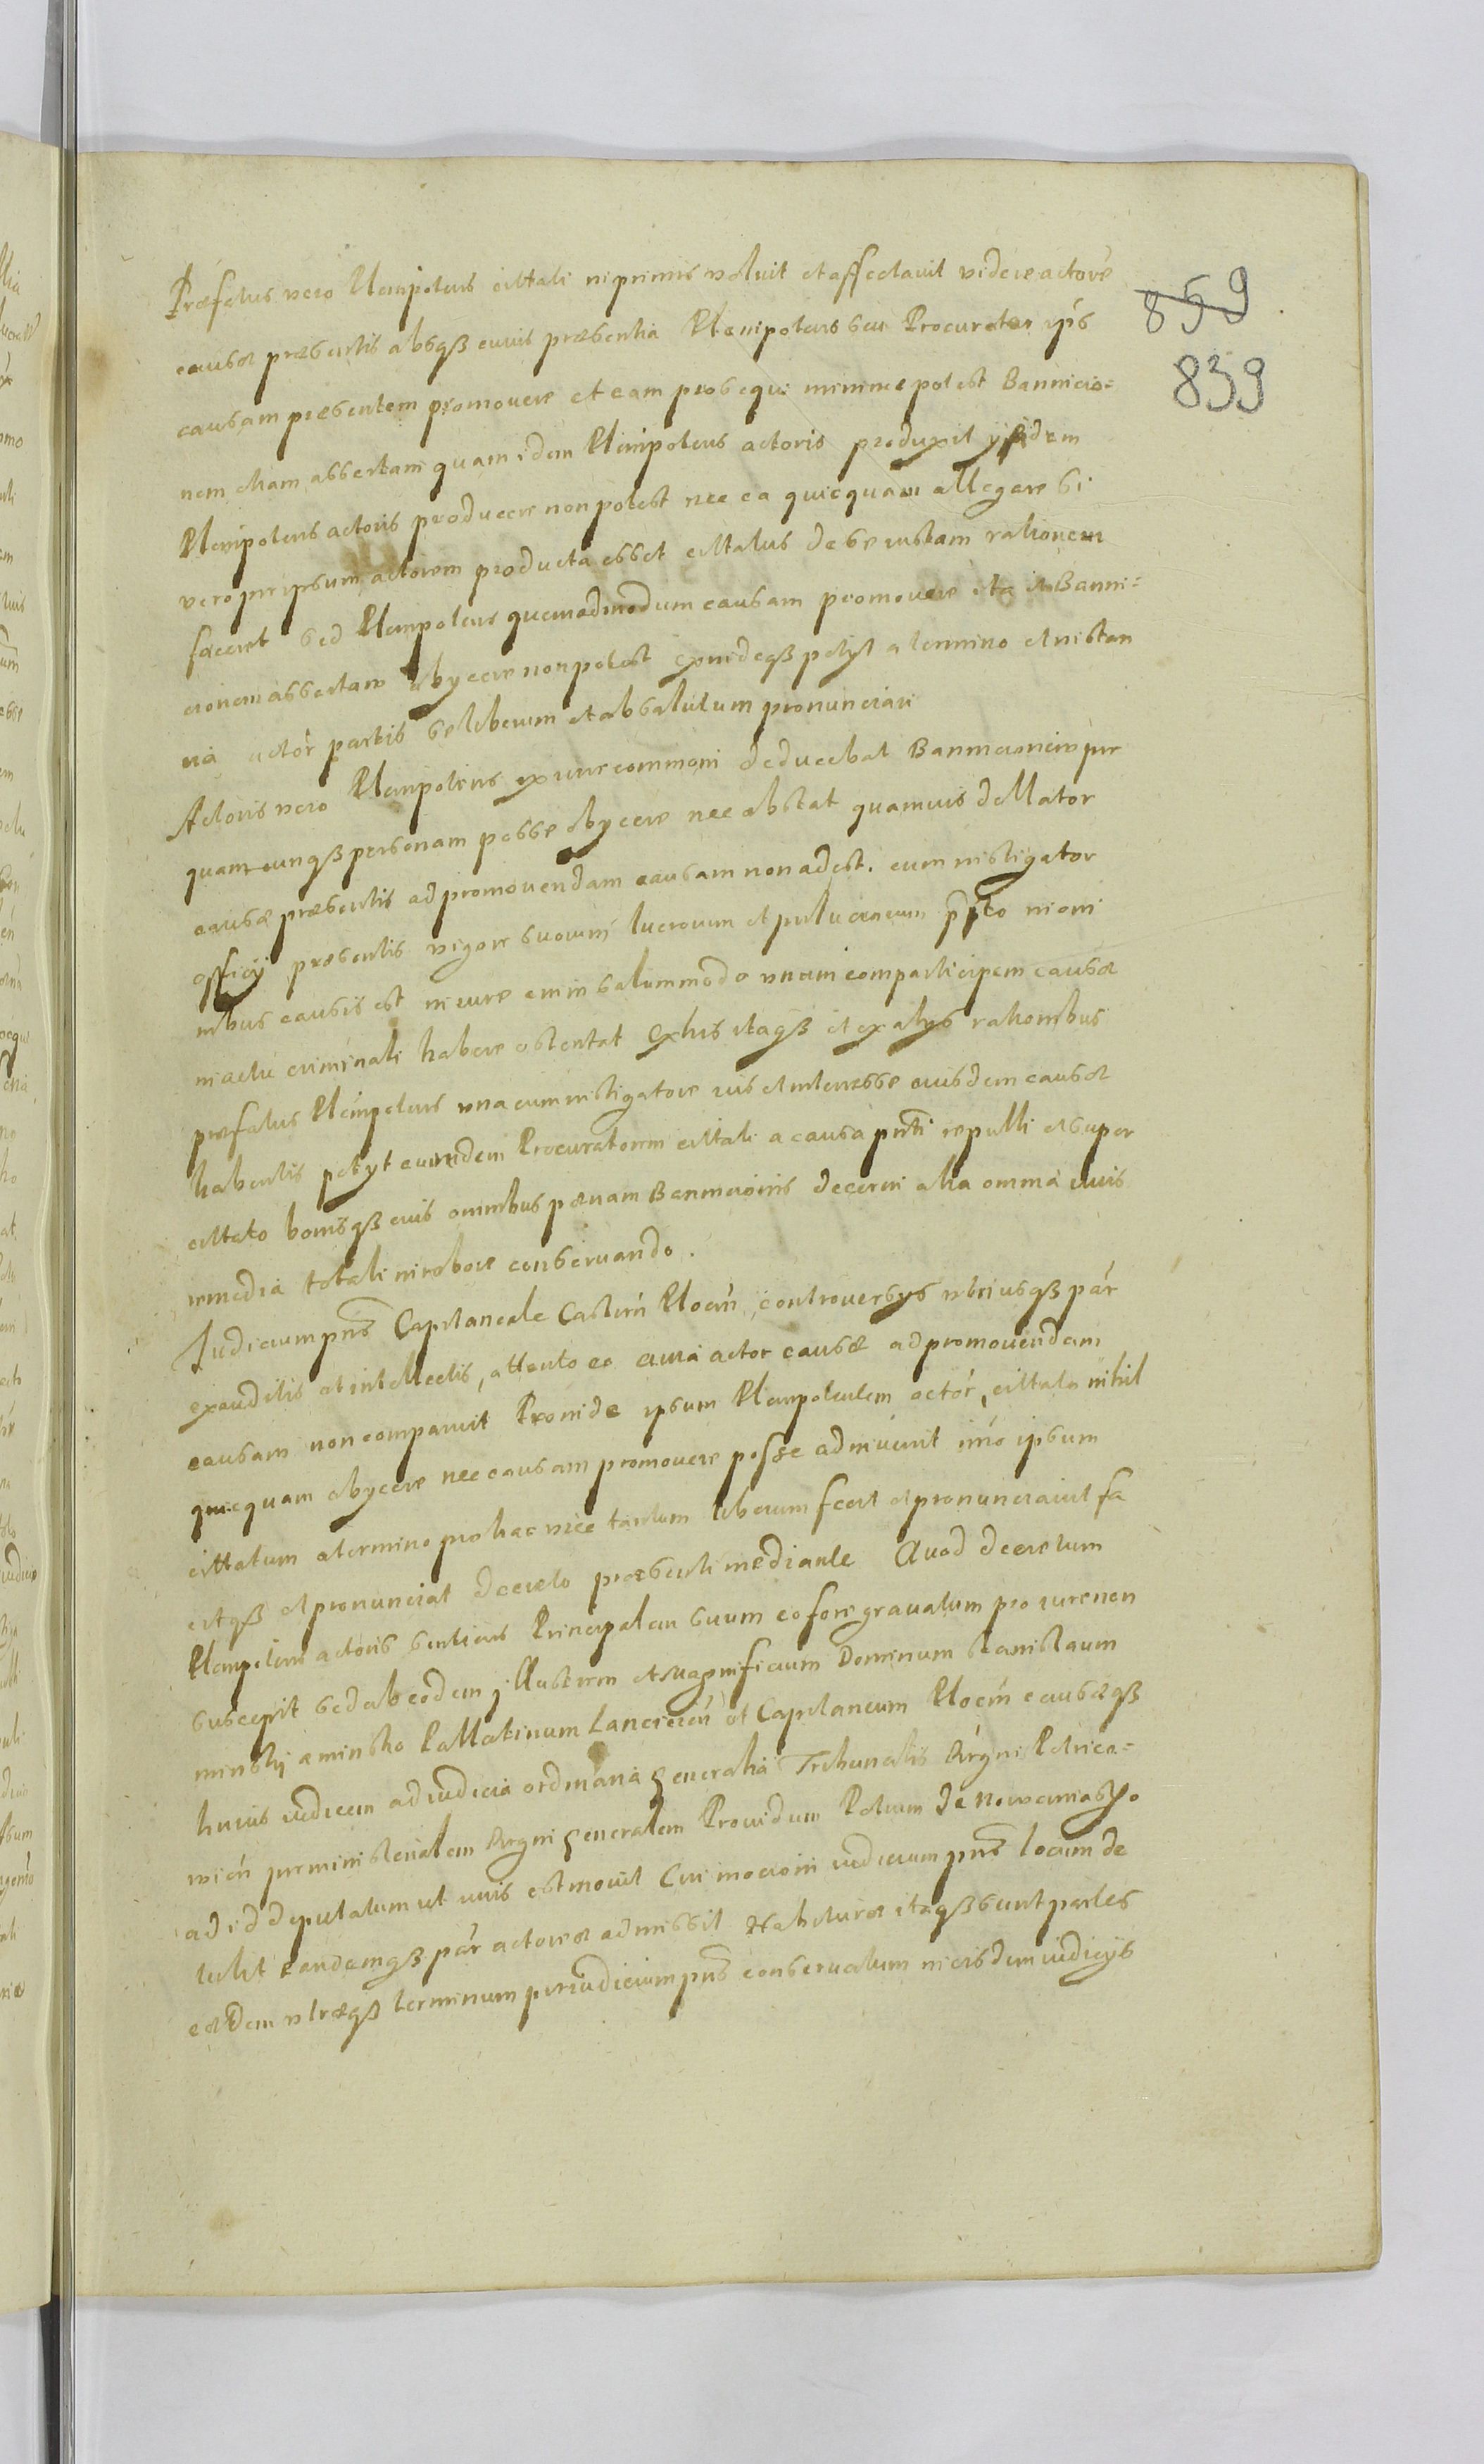 Præfatus vero Plenipotens cittati inprimis voluit et affectavit videre actore
causæ præsentis absqß cuius præsentia Plenipotens seu Procurator ips
causam præsentem promovere et eam prosequi minime potest Bannicio=
nem etiam assertam quam idem Plenipotens actoris produxit ysidem
Plenipotens actoris producere non potest nec ea quicquam allegare si
vero per ipsum actorem producta esset cittatus de se iustam rationem
faceret sed Plenipotens quemadmodum causam promovere ita et Banni=
cionem assertam obycere non potest exindeqß petyt a termino et instan
cia actor partis se liberum et absolutum pronunciari
Actoris vero Plenipotens ex iure communi deducebat Bannicionem per
quamcunqß personam posse obycere nec obstat quamvis dellator
causæ præsentis ad promovendam causam non adest. cum instigator
officij præsentis vigore suorum lucrorum et pœlucrorum ppto in omi
nibus causis est in iure enim solummodo unum comparticipem causæ
in actu criminali habere ostentat Ex his itaqß et ex alys rationibus
præfatus Plenipotens una cum instigatore ius et interesse eiusdem causæ
habentis petyt eundem Procuratorem cittati a causa pnti repulli et super
cittato bonisqß eius omnibus pœnam Bannicionis decerni alia omnia iuris
remedia totali in robore conservando.
Iudicium pns Capitaneale Castren Plocen controversys utriusqß par
exauditis et intellectis, attento eo cum actor causæ ad promovendam
causam non comparuit Proinde ipsum Plenipotentem actor, cittato nihil
quicquam obycere nec causam promovere posse adinvenit imo ipsum
cittatum a termino pro hac vice tantum liberum fecit et pronunciavit fa
citqß et pronunciat decreto præsenti mediante Quod decretum
Plenipotens actoris sentiens Principalem suum eo fore gravatum pro iure non
suscepit sed ab eodem jllustrem et Magnificum Dominum Stanislaum
minskij a minsko Pallatinum Lancicien et Capitaneum Plocen causæqß
huius iudicem ad iudicia ordinaria generalia Tribunalis Regni Petrico=
vien per ministerialem Regni generalem Providum Petrum de Nowemiasto
ad id deputatum ut iuris est movit Cui mocioni iudicium pns locum de
tulit eandemqß par actoreæ admissit Habituræ itaqß sunt partes
eædem utræqß terminum per iudicium pns conservatum in eisdem iudicijs
859
839